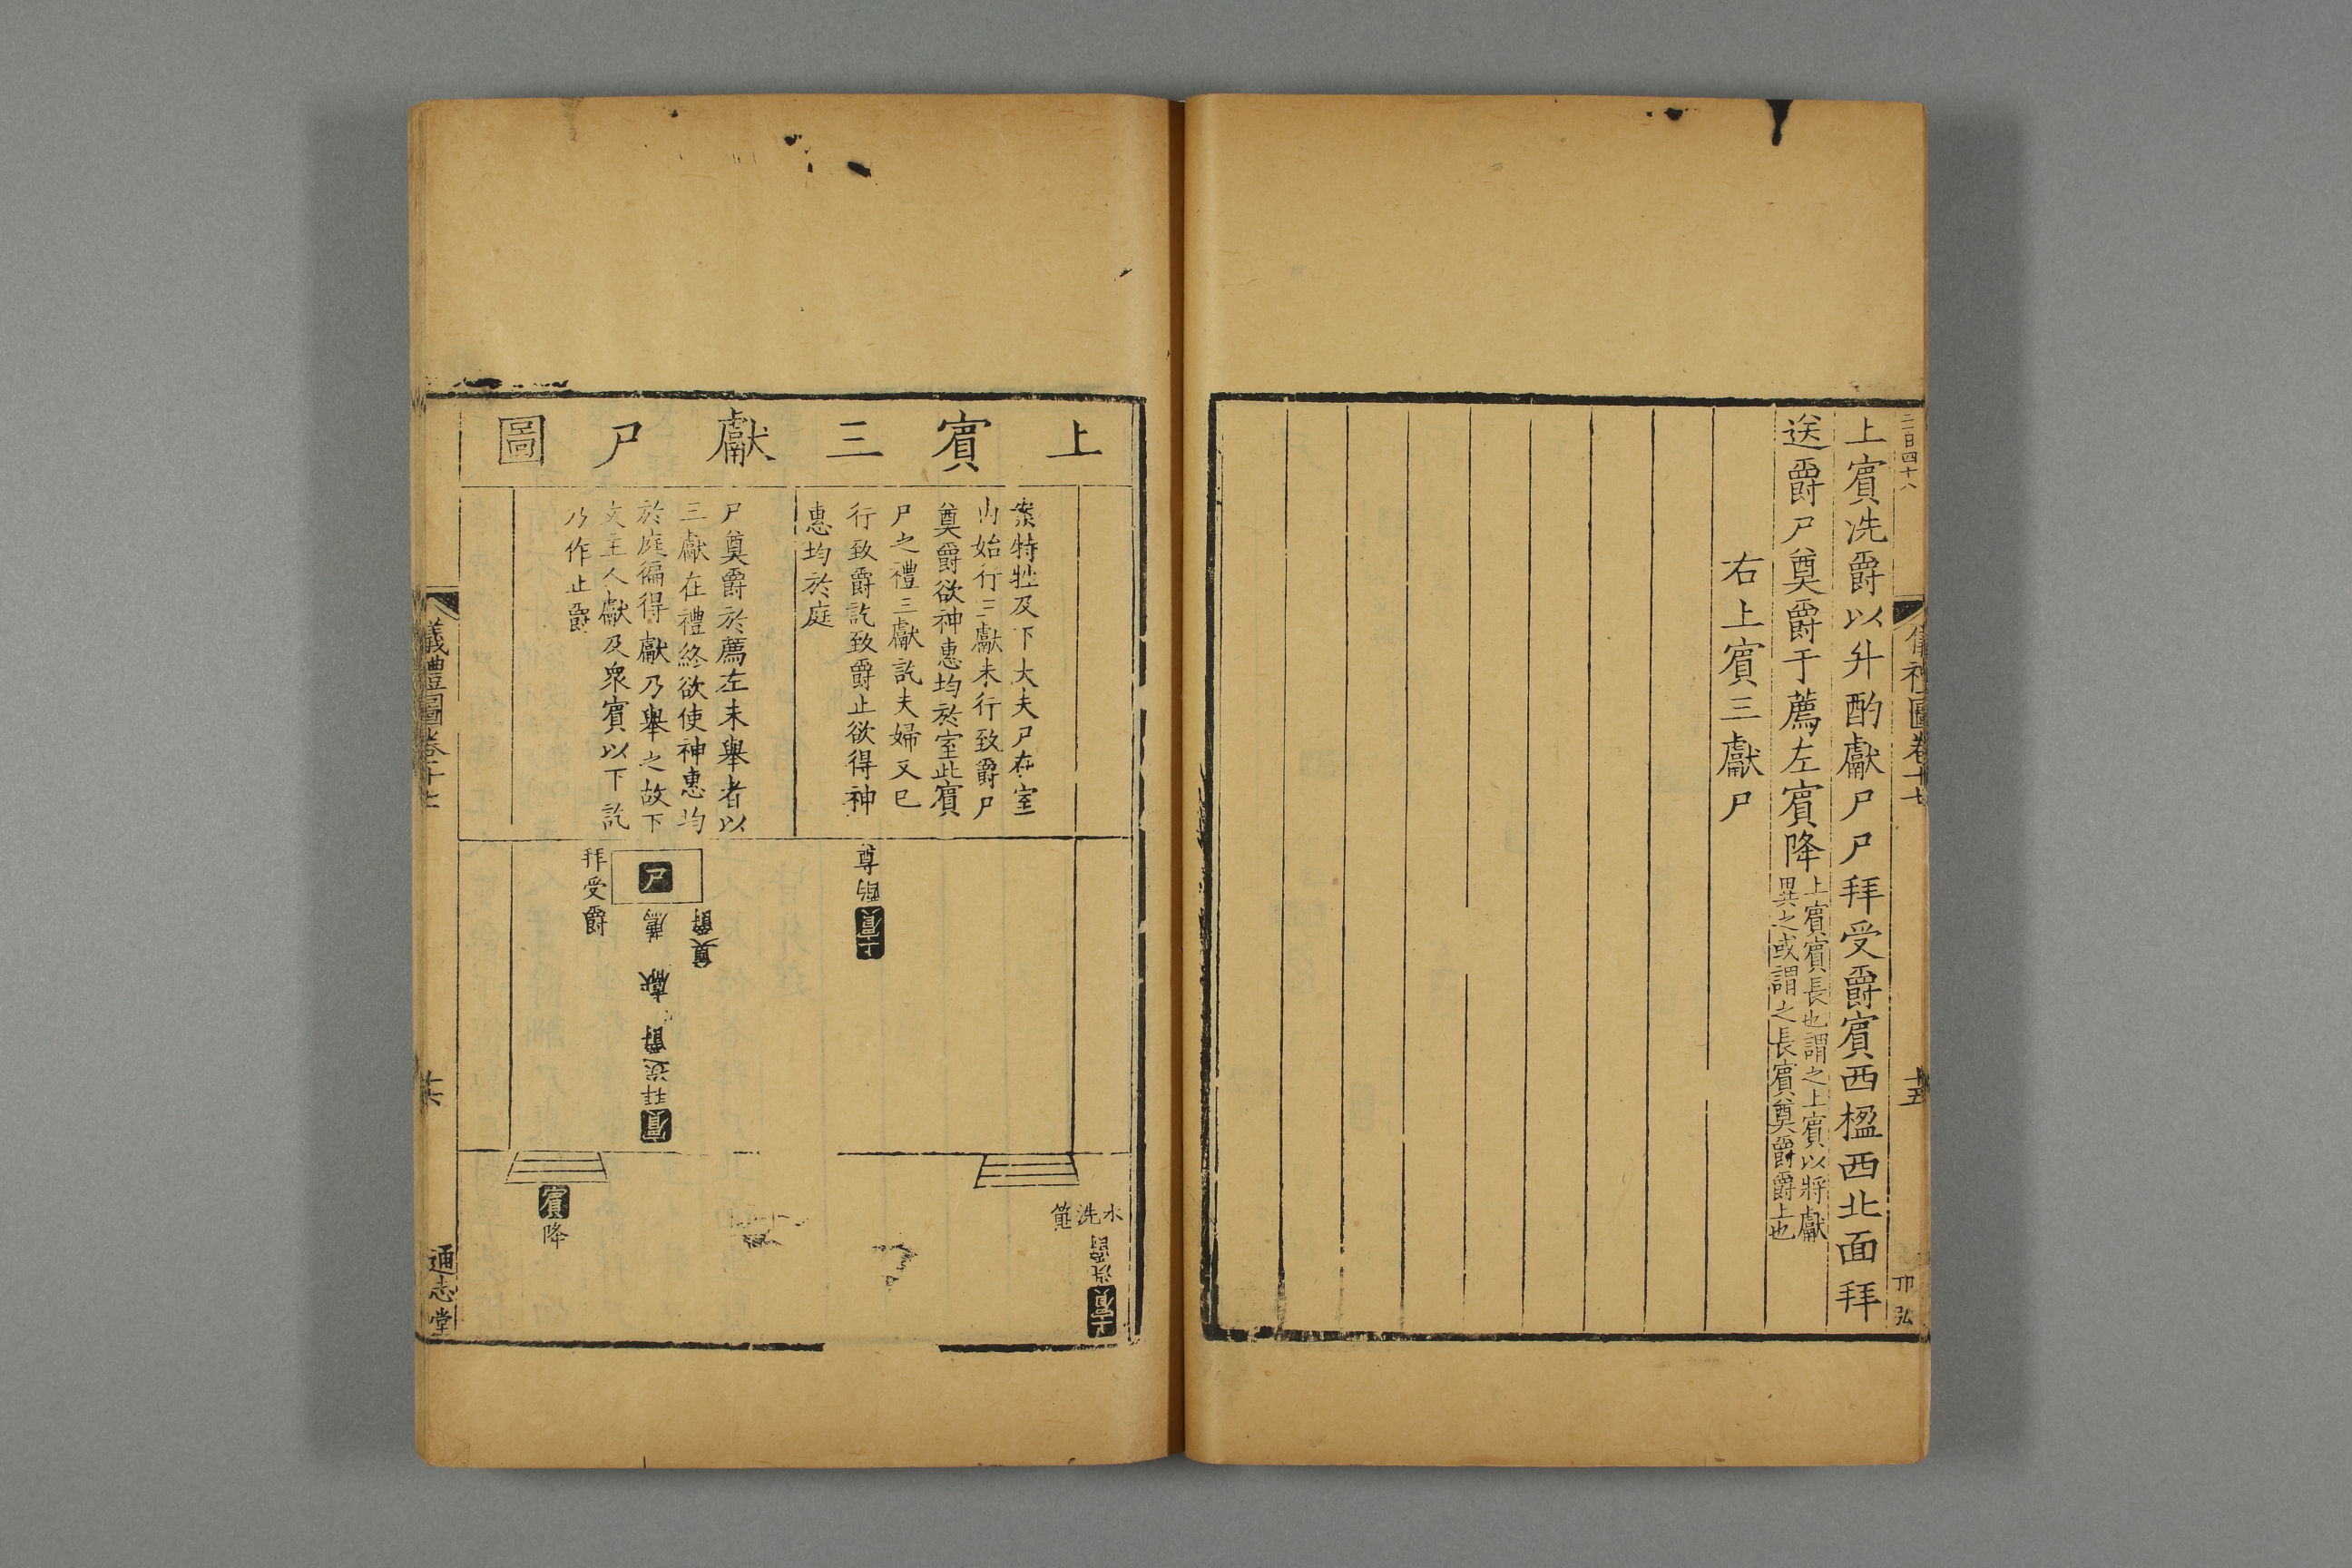 二百四十八
儀禮圖卷十七
十五
卭弘
上賔洗爵以升酌獻尸尸拜受爵賔西楹西北面拜
送爵尸奠爵于薦左賔降
上賔賔長也謂之上賔以將獻
異之或謂之長賔奠爵爵上也
右上賔三獻尸
上賔三獻尸圖
案特牲及下大夫尸在室
内始行三獻未行致爵尸
奠爵欲神惠均於室此賔
尸之禮三獻訖夫婦又已
行致爵訖致爵止欲得神
惠均於庭
尸奠爵於薦左未舉者以
三獻在禮終欲使神惠均
於庭徧得獻乃舉之故下
文主人獻及衆賔以下訖
乃作止爵
尊
酌
上賔
尸
拜受爵
薦
奠爵
獻
拜送爵
賔
賔
降
水
洗
篚
洗爵
上賔
儀禮圖卷十七
十六
通志堂